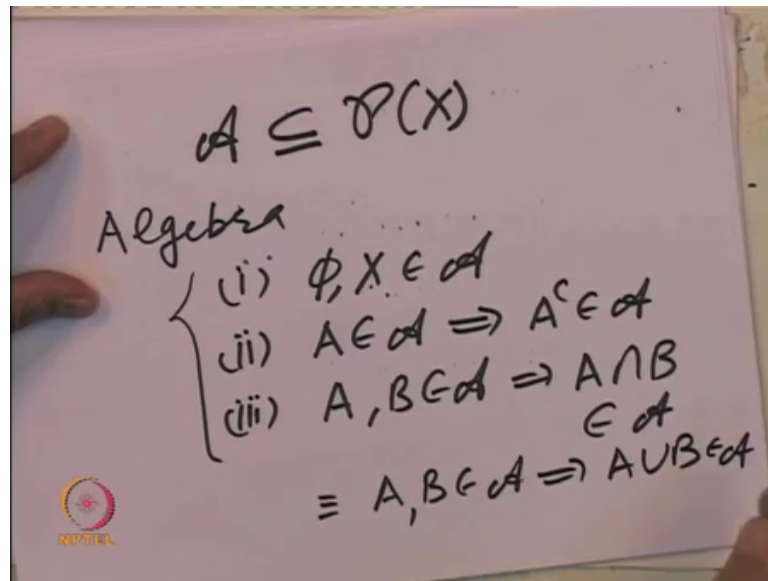 𝒜 ⊆ 𝒫(X)
Algebra
(i) ϕ, X ∈ 𝒜
(ii) A ∈ 𝒜 ⇒ Aᶜ ∈ 𝒜
(iii) A, B ∈ 𝒜 ⇒ A ∩ B
∈ 𝒜
≡ A, B ∈ 𝒜 ⇒ A ∪ B ∈ 𝒜
NPTEL